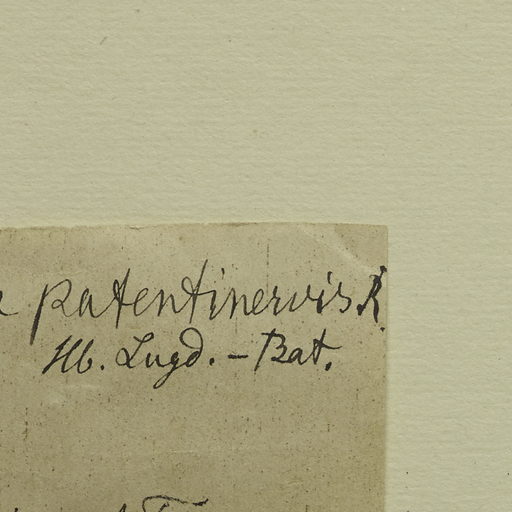 patentinervis R.
Hb. Lugd. - Bat.